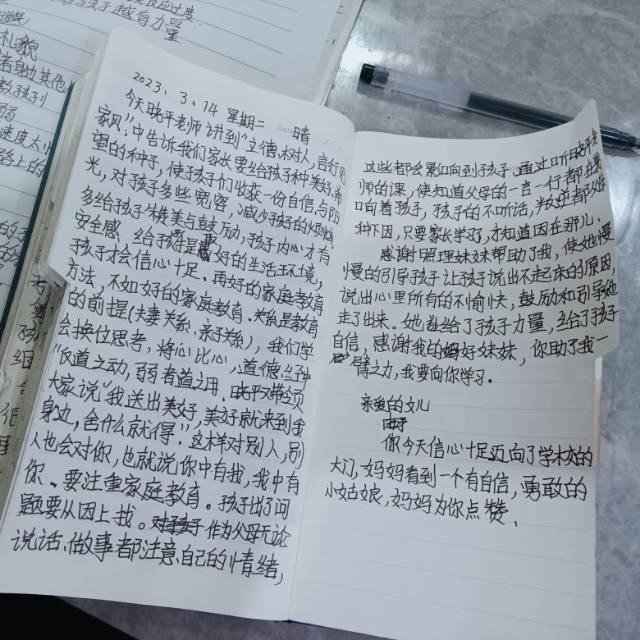 反应过度.
与孩子 越有力量
2023、3、14 星期二 晴
今天晓平老师讲到"立德树人,言行
家风":中告诉我们家长要给孩子种美好
里的种子,使孩子们收获一份自信与阳
光,对孩子多些宽容,减少孩子的烦恼
多给孩子赞美与鼓励,孩子内心才有
安全感,给予好的生活环境,
孩子才会信心十足、再好的家庭教育
方法,不如好的家庭教育.关系是教育
的前提(夫妻关系、亲子关系),我们学
会换位思考,将心比心,道德经种
"反道之动,弱者道之用.晓平老师领
大家说"我送出美好,美好就来到我
身边,舍什么就得!"这样对别人,别
人也会对你,也就说你中有我,我中有
你.要注重家庭教育。孩子出了问
题要从因上找。作为父母无论
说话、做事都注意自己的情绪,
这些都会影响到孩子.通过听晓平
师的课,使知道父母的一言一行都在影
响着孩子,孩子的不听话,叛逆都是父母
种下因,只要家长学习了,才知道因在那儿、
感谢照理妹妹帮助了我,使她慢
慢的引导孩子让孩子说出不起床的原因,
说出心里所有的不愉快,鼓励和引导她
走了出来。她给了孩子力量,给了孩子
自信,感谢我的好妹妹,你助了我一
臂之力,我要向你学习。
亲爱的女儿
你今天信心十足迈向了学校的
大门,妈妈看到一个有自信,勇敢的
小姑娘,妈妈为你点赞、